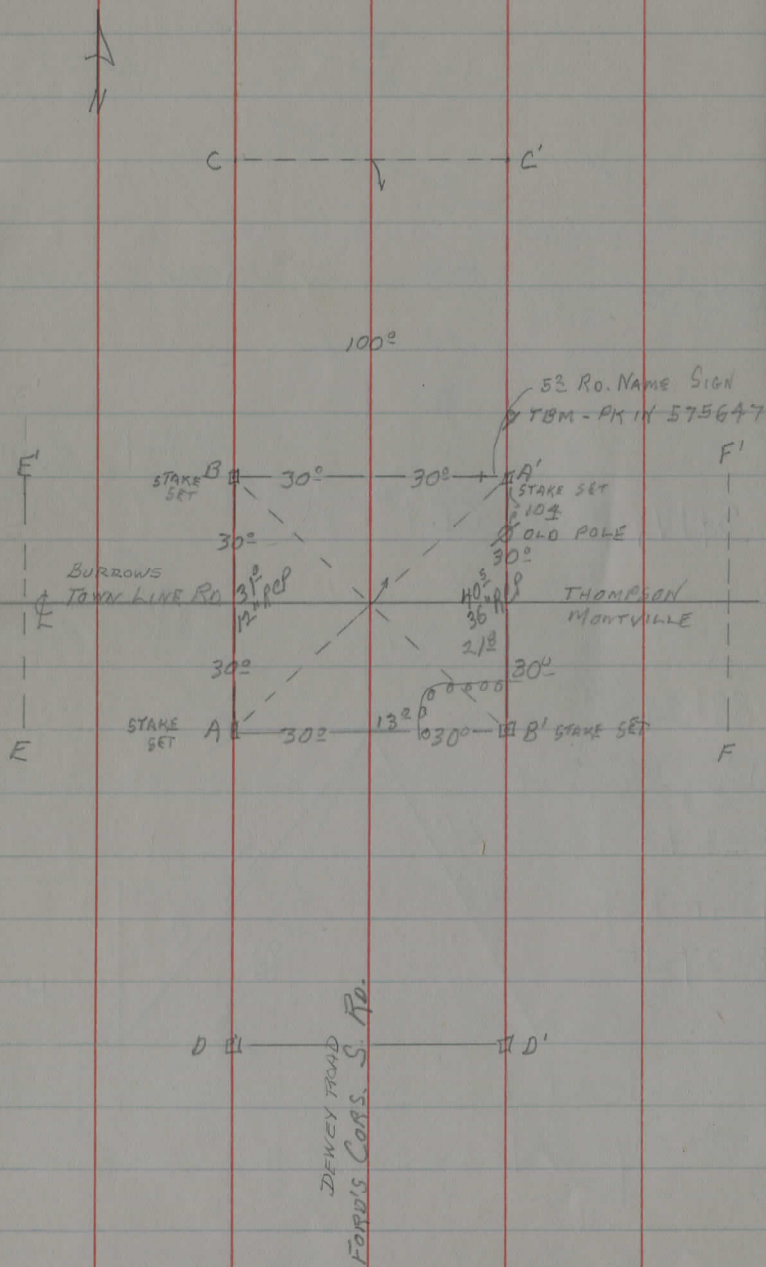 N
C C'
100⁰
53 RD. NAME SIGN
TBM - PK IN 575647
E' F'
B 30⁰ 30⁰ A'
STAKE SET
STAKE SET
104
OLD POLE
30⁰ 30⁰
BURROWS
TOWN LINE RD.
31⁰
12" RCP
40⁵
36" RCP
THOMPSON
MONTVILLE
21⁸
30⁰ 30⁰
STAKE SET
A 30⁰ 13² 30⁰ B' STAKE SET
E F
D D'
DEWEY ROAD
FORD'S CORS. S. RD.